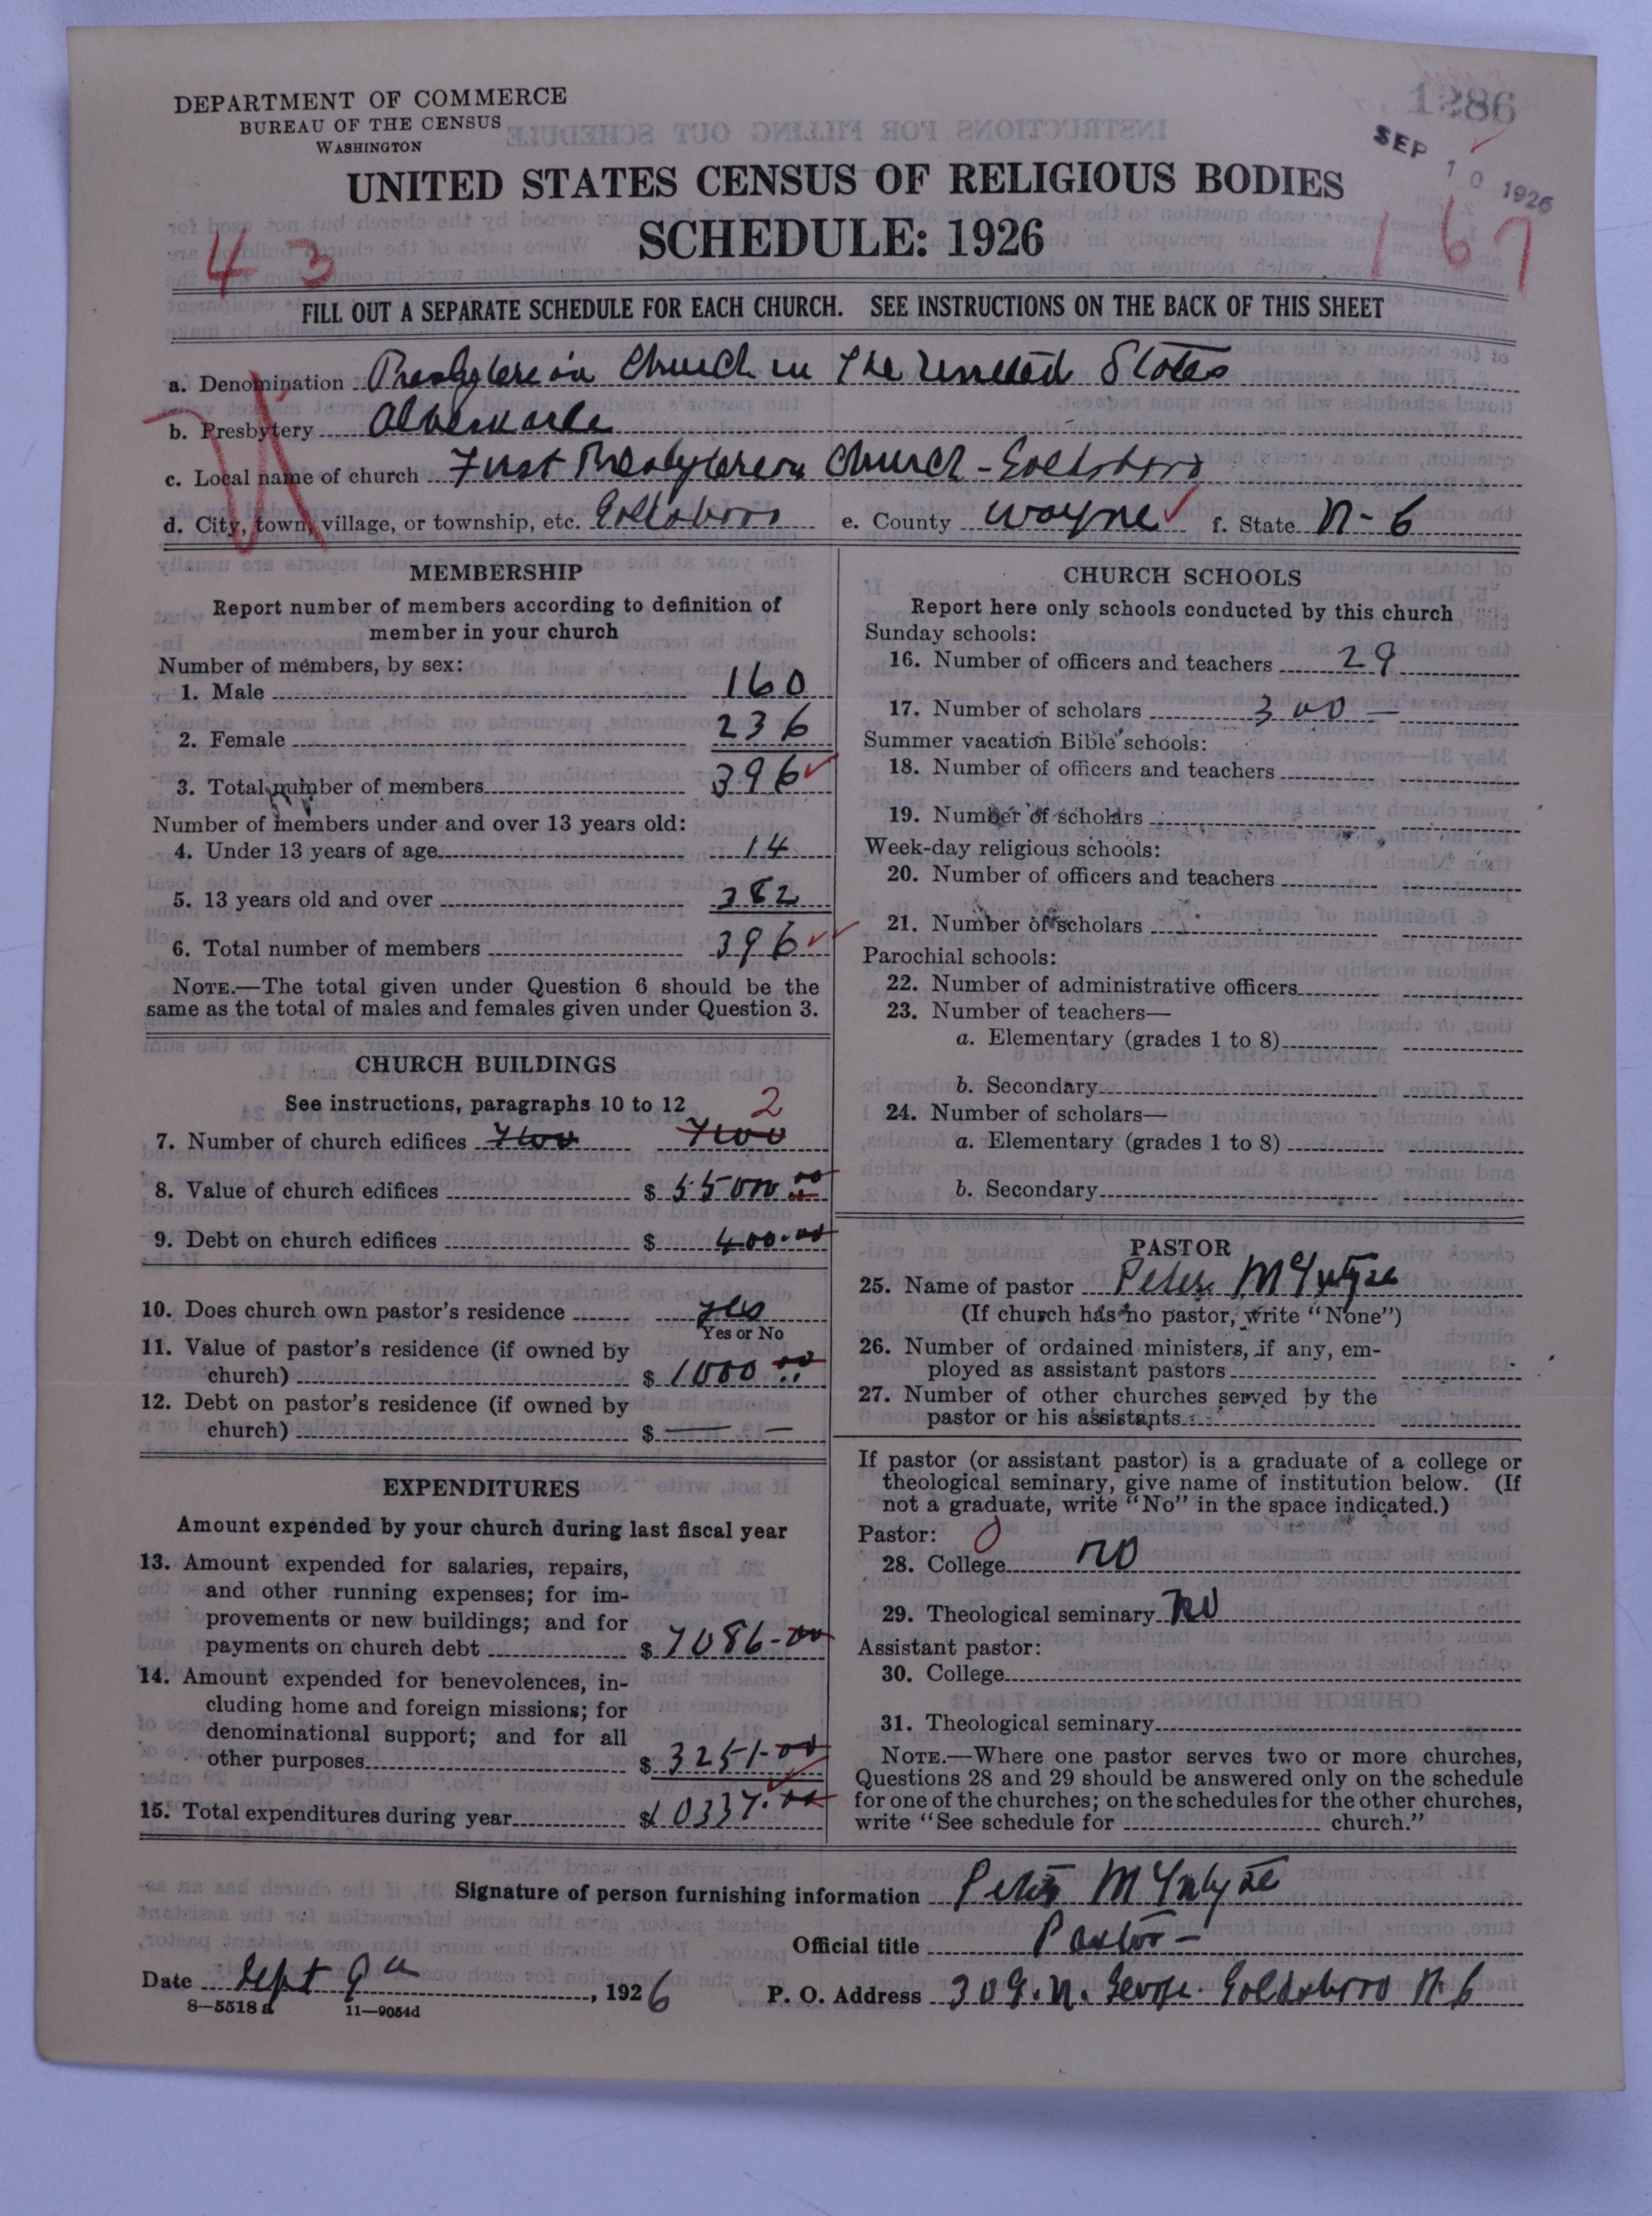 1286
SEP 10 1926
DEPARTMENT OF COMMERCE
BUREAU OF THE CENSUS
WASHINGTON
UNITED STATES CENSUS OF RELIGIOUS BODIES
SCHEDULE: 1926
43
167
FILL OUT A SEPARATE SCHEDULE FOR EACH CHURCH. SEE INSTRUCTIONS ON THE BACK OF THIS SHEET
a. Denomination Presbyterian Church in The United States
b. Presbytery Albemarle
c. Local name of church First Presbyterian Church - Goldsboro
d. City, town, village, or township, etc. Goldsboro e. County Wayne f. State N-C
MEMBERSHIP
Report number of members according to definition of
member in your church
Number of members, by sex:
1. Male 160
2. Female 236
3. Total number of members 396
Number of members under and over 13 years old:
4. Under 13 years of age 14
5. 13 years old and over 382
6. Total number of members 396
NOTE.—The total given under Question 6 should be the
same as the total of males and females given under Question 3.
CHURCH BUILDINGS
See instructions, paragraphs 10 to 12
2
7. Number of church edifices Two Two
8. Value of church edifices $ 55000.00
9. Debt on church edifices $ 400.00
10. Does church own pastor's residence yes
Yes or No
11. Value of pastor's residence (if owned by
church) $ 1000 00
12. Debt on pastor's residence (if owned by
church) $ — —
EXPENDITURES
Amount expended by your church during last fiscal year
13. Amount expended for salaries, repairs,
and other running expenses; for im-
provements or new buildings; and for
payments on church debt $ 7086-00
14. Amount expended for benevolences, in-
cluding home and foreign missions; for
denominational support; and for all
other purposes $ 3251-00
15. Total expenditures during year $ 10337.00
CHURCH SCHOOLS
Report here only schools conducted by this church
Sunday schools:
16. Number of officers and teachers 29
17. Number of scholars 300 —
Summer vacation Bible schools:
18. Number of officers and teachers
19. Number of scholars
Week-day religious schools:
20. Number of officers and teachers
21. Number of scholars
Parochial schools:
22. Number of administrative officers
23. Number of teachers—
a. Elementary (grades 1 to 8)
b. Secondary
24. Number of scholars—
a. Elementary (grades 1 to 8)
b. Secondary
PASTOR
25. Name of pastor Peter McIntyre
(If church has no pastor, write "None")
26. Number of ordained ministers, if any, em-
ployed as assistant pastors
27. Number of other churches served by the
pastor or his assistants
If pastor (or assistant pastor) is a graduate of a college or
theological seminary, give name of institution below. (If
not a graduate, write "No" in the space indicated.)
Pastor: 0
28. College no
29. Theological seminary no
Assistant pastor:
30. College
31. Theological seminary
NOTE.—Where one pastor serves two or more churches,
Questions 28 and 29 should be answered only on the schedule
for one of the churches; on the schedules for the other churches,
write "See schedule for church."
Signature of person furnishing information Peter McIntyre
Official title Pastor -
Date Sept 9th, 1926 P. O. Address 309. N. George. Goldsboro N C
8—5518 a 11—9054d